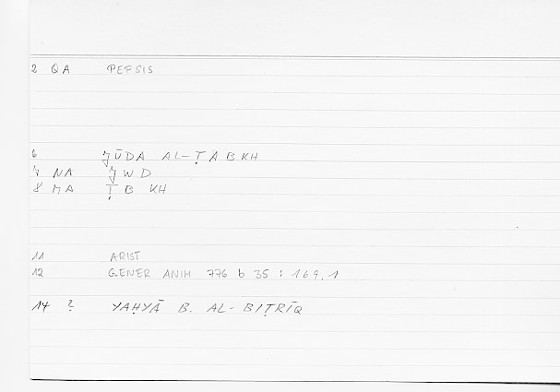 2 QA PEPSIS
6 ǦŪDA AL-ṬĀBKH
7 NA ǦWD
8 MA ṬB KH
11 ARIST
12 GENER ANIM 776 b 35 : 169.1
14 ? YAḤYĀ B. AL-BIṬRĪQ